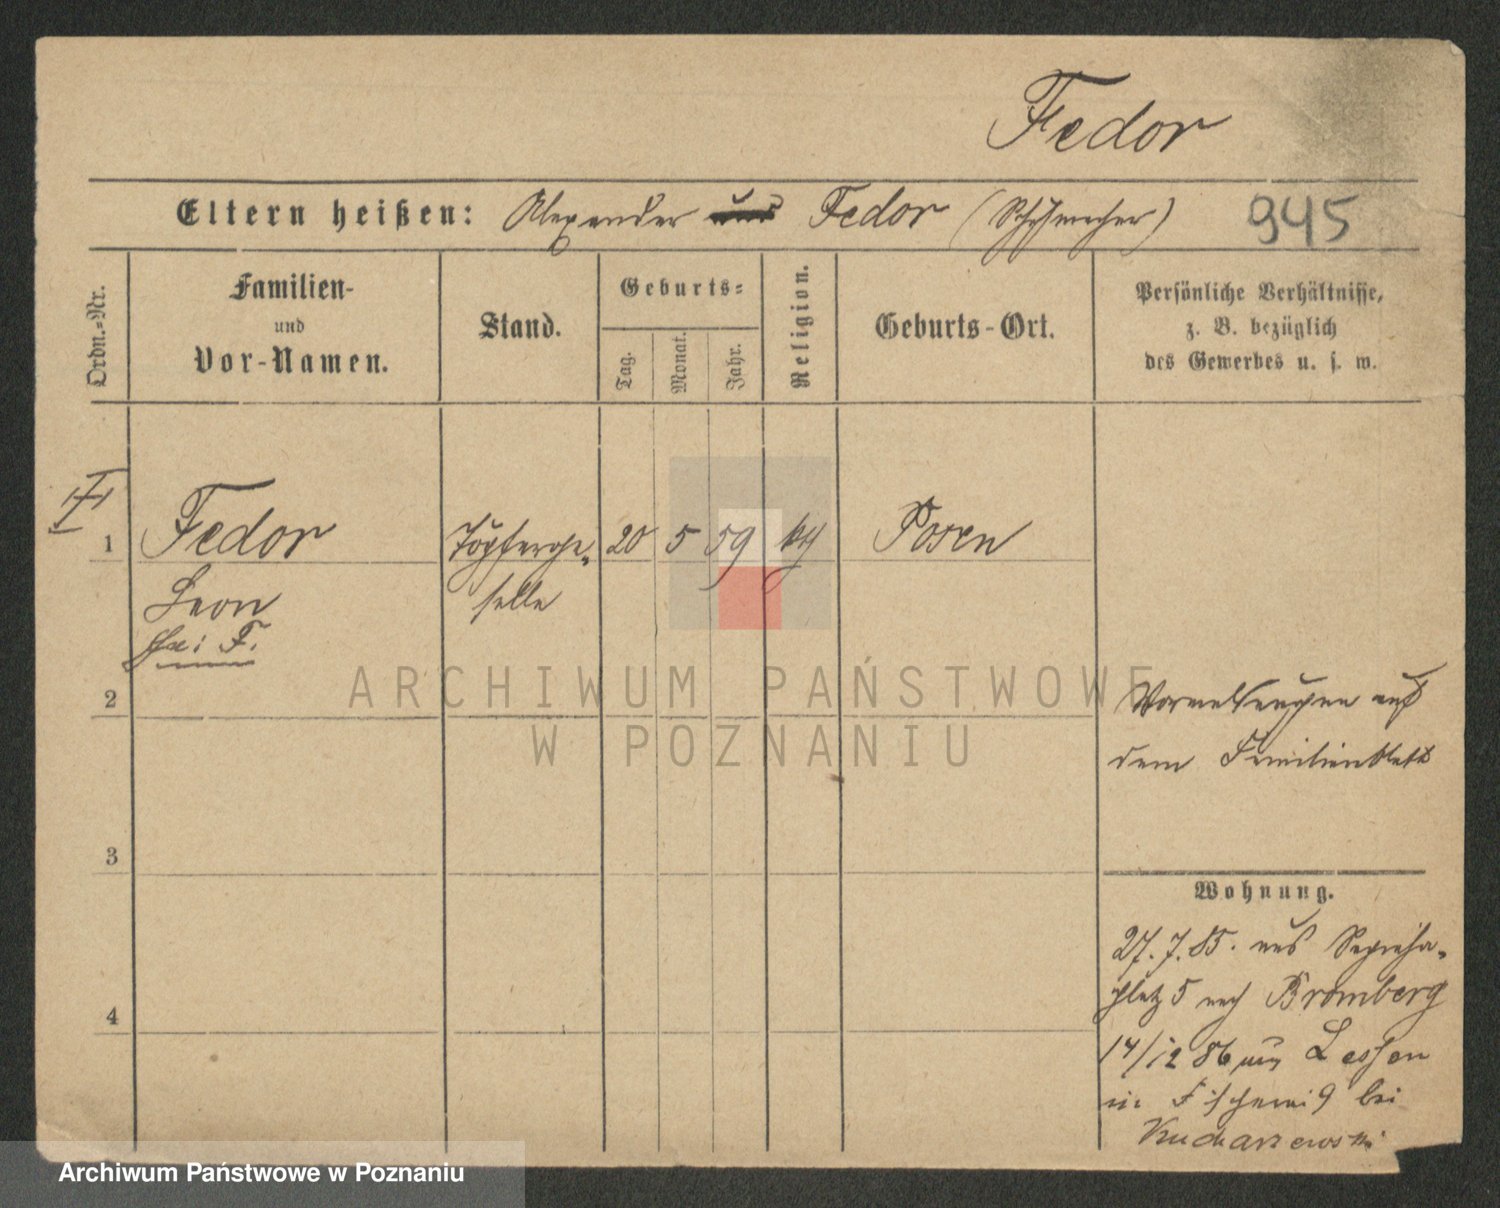 Fedor
Eltern heißen: Alexander Fedor (Schuhmacher) 945
Ordn.-Nr.
Familien-
und
Vor-Namen.
Stand.
Geburts-
Tag.
Monat.
Jahr.
Religion.
Geburts-Ort.
Persönliche Verhältnisse,
z. B. bezüglich
des Gewerbes u. s. w.
1 Fedor Töpferge- 20 5 59 kth Posen
Leon selle
F.
2
3
4
Vormerkungen auf
dem Familienblatt
Wohnung.
27.7.85. aus Sapieha-
platz 5 nach Bromberg
14/12 86 aus Lessen
in Fischerei 9 bei
Kucharzewski
ARCHIWUM PAŃSTWOWE
W POZNANIU
Archiwum Państwowe w Poznaniu